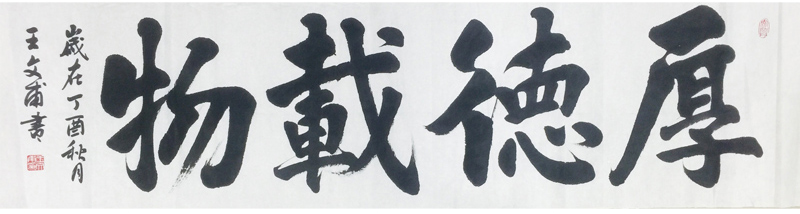 厚德載物
歲在丁酉秋月
王文甫書